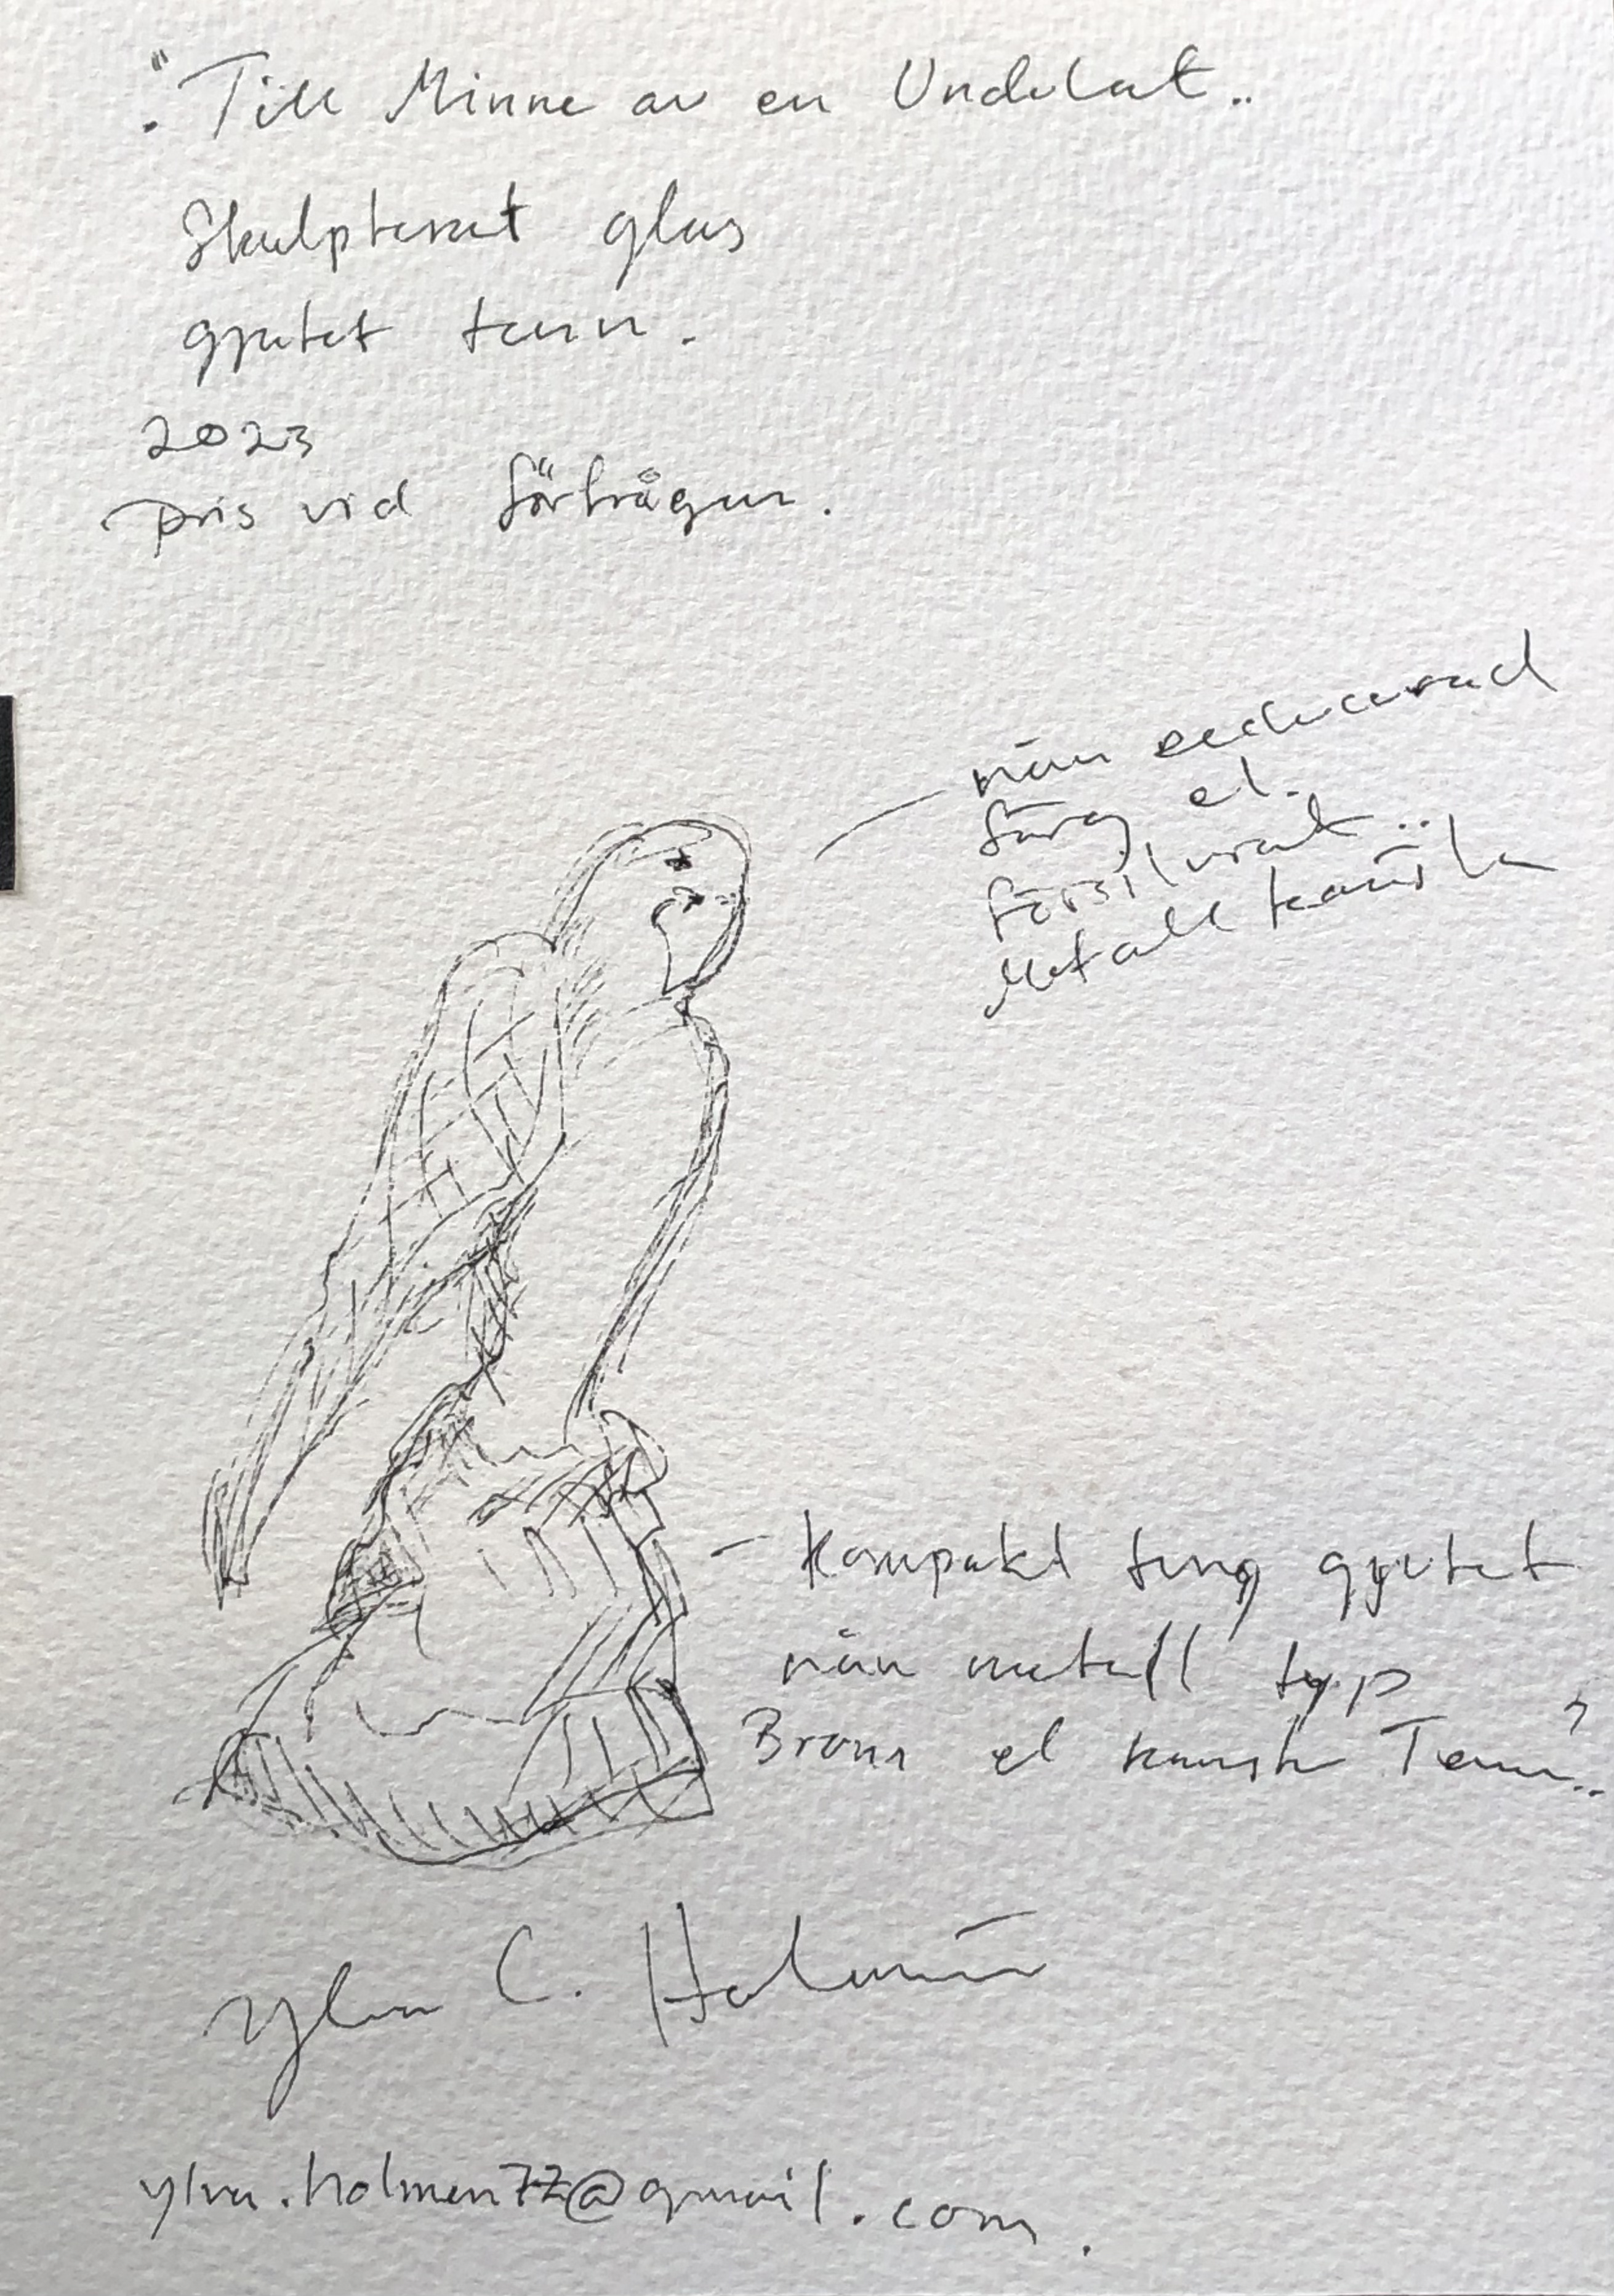 "Till Minne av en Undulat..
Skulpterat glas
gjutet tenn.
2023
pris vid förfrågan.
nån reducerad
färg el.
försilvrat..
Metall kanske
- Kompakt tung gjutet
nån metall typ
Brons el kanske Tenn..?
Ylva C. Holmén
ylva.holmen77@gmail.com.